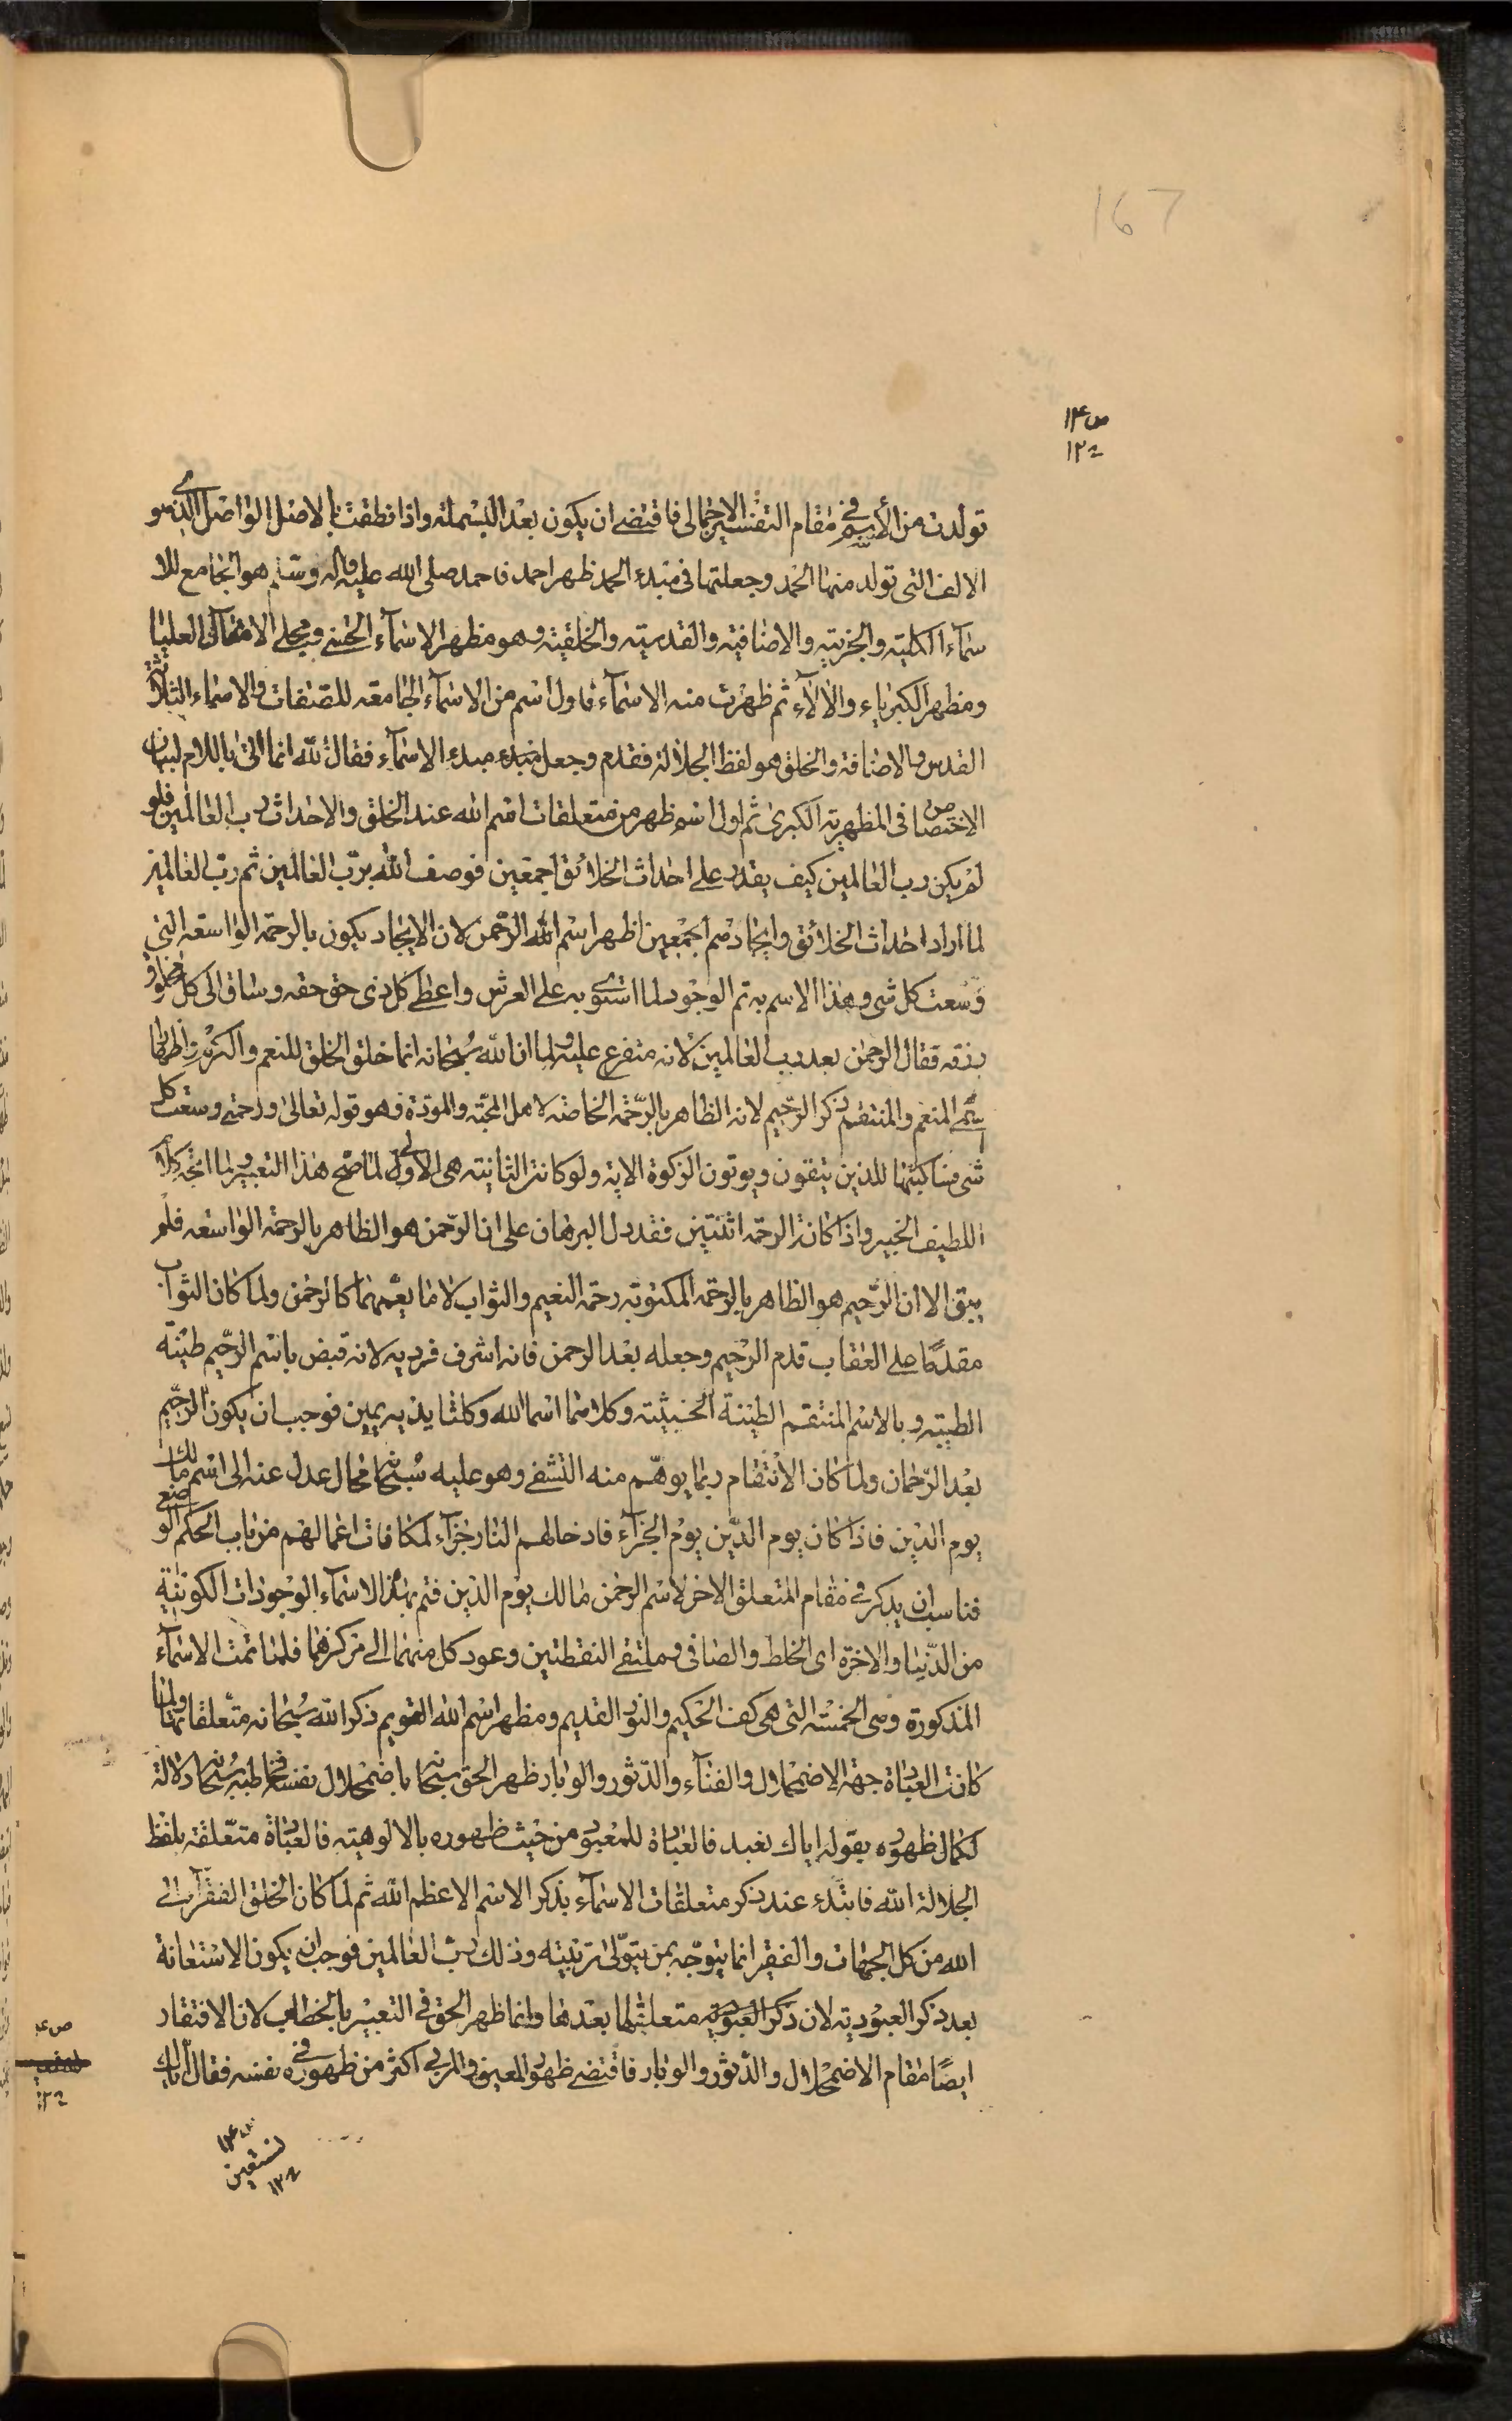 167
ص۱۴
۱۲۲
تولدت من الأسم في مقام التفسير الاجمالى فاقتضى ان يكون بعد البسملة واذا نطقت بالاصل الواصل الذى هو
الالف التى تولد منها الحمد وجعلتها فى مبدء الحمد ظهر احمد فاحمد صلى الله عليه واله وسلم هو الجامع للا
سماء الكلية والجزئية والاضافية والقدسية والخلقية وهو مظهر الاسمآء الحسنى ومجلى الامثال العليا
ومظهر الكبرياء والالآء ثم ظهرت منه الاسمآء فاول اسم من الاسمآء الجامعة للصفات والاسماء الثلاثة
القدس والاضافة والخلق هو لفظ الجلالة فقدم وجعل مبدء مبدء الاسمآء فقال لله انما اتى باللام لبيان
الاختصاص فى المظهرية الكبرى ثم اول اسم ظهر من متعلقات اسم الله عند الخلق والاحداث رب العالمين فلو
لم يكن رب العالمين كيف يقدر على احداث الخلائق اجمعين فوصف الله برب العالمين ثم رب العالمين
لما اراد احداث الخلائق وايجادهم اجمعين اظهر اسم الله الرحمن لان الايجاد يكون بالرحمة الواسعة التى
وسعت كل شى وهذا الاسم به تم الوجود لما استوى به على العرش واعطى كل ذى حق حقه وساق الى كل مخلوق
رزقه فقال الرحمن بعد رب العالمين لانه متفرع عليه ولما ان الله سبحانه انما خلق الخلق للنعم
المنعم والمنتقم ذكر الرحيم لانه الظاهر بالرحمة الخاصة لاهل المحبة والمودة وهو قوله تعالى ورحمتى وسعت كل
شى فساكتبها للذين يتقون ويوتون الزكوة الاية ولو كانت الثانية هى الاولى لما صح هذا التعبير
اللطيف الخبير واذا كانت الرحمة اثنتين فقد دل البرهان على ان الرحمن هو الظاهر بالرحمة الواسعة فلم
يبق الا ان الرحيم هو الظاهر بالرحمة المكتوبة رحمة النعيم والثواب لا ما يعمهما كالرحمن ولما كان الثواب
مقدما على العقاب قدم الرحيم وجعله بعد الرحمن فانه اشرف فرديه لانه قبض باسم الرحيم طينة
الطيبة وبالاسم المنتقم الطينة الخبيثة وكلاهما اسما الله وكلتا يديه يمين فوجب ان يكون الرحيم
بعد الرحمان ولما كان الأنتقام ربما يوهم منه التشفى وهو عليه سبحانه محال عدل عنه الى اسم مالك
يوم الدين فاذا كان يوم الدين يوم الجزآء فادخالهم النار جزآء لمكافات اعمالهم من باب الحكم الوضعى
فناسب ان يذكر فى مقام المتعلق الاخر لاسم الرحمن مالك يوم الدين فتم بهذه الاسمآء الوجودات الكونية
من الدنيا والاخرة اى الخلط والصافى وملتقى النقطتين وعود كل منهما الى مركزهما فلما تمت الاسمآء
المذكورة وهى الخمسة التى هى كف الحكيم والنور القديم ومظهر اسم الله القويم ذكر الله سبحانه متعلقاتها ولما
كانت العبادة جهة الاضمحلال والفنآء والدثور والوبار ظهر الحق سبحانه باضمحلال نفسه فخاطبه سبحانه دلالة
لكمال ظهوره بقوله اياك نعبد فالعبادة للمعبود من حيث ظهوره بالالوهية فالعبادة متعلقة بلفظ
الجلالة الله فابتدء عند ذكر متعلقات الاسمآء بذكر الاسم الاعظم الله ثم لما كان الخلق الفقرآء الى
الله من كل الجهات والفقير انما يتوجه بمن يتولى تربيته وذلك رب العالمين فوجب ان يكون الاستعانة
بعد ذكر العبودية لان ذكر العبودية متعلق لما بعدها وانما ظهر الحق فى التعبير بالخطاب لان الافتقار
ايضا مقام الاضمحلال والدثور والوبار فاقتضى ظهور المعين والمربى اكثر من ظهوره فى نفسه فقال اياك
نستعين